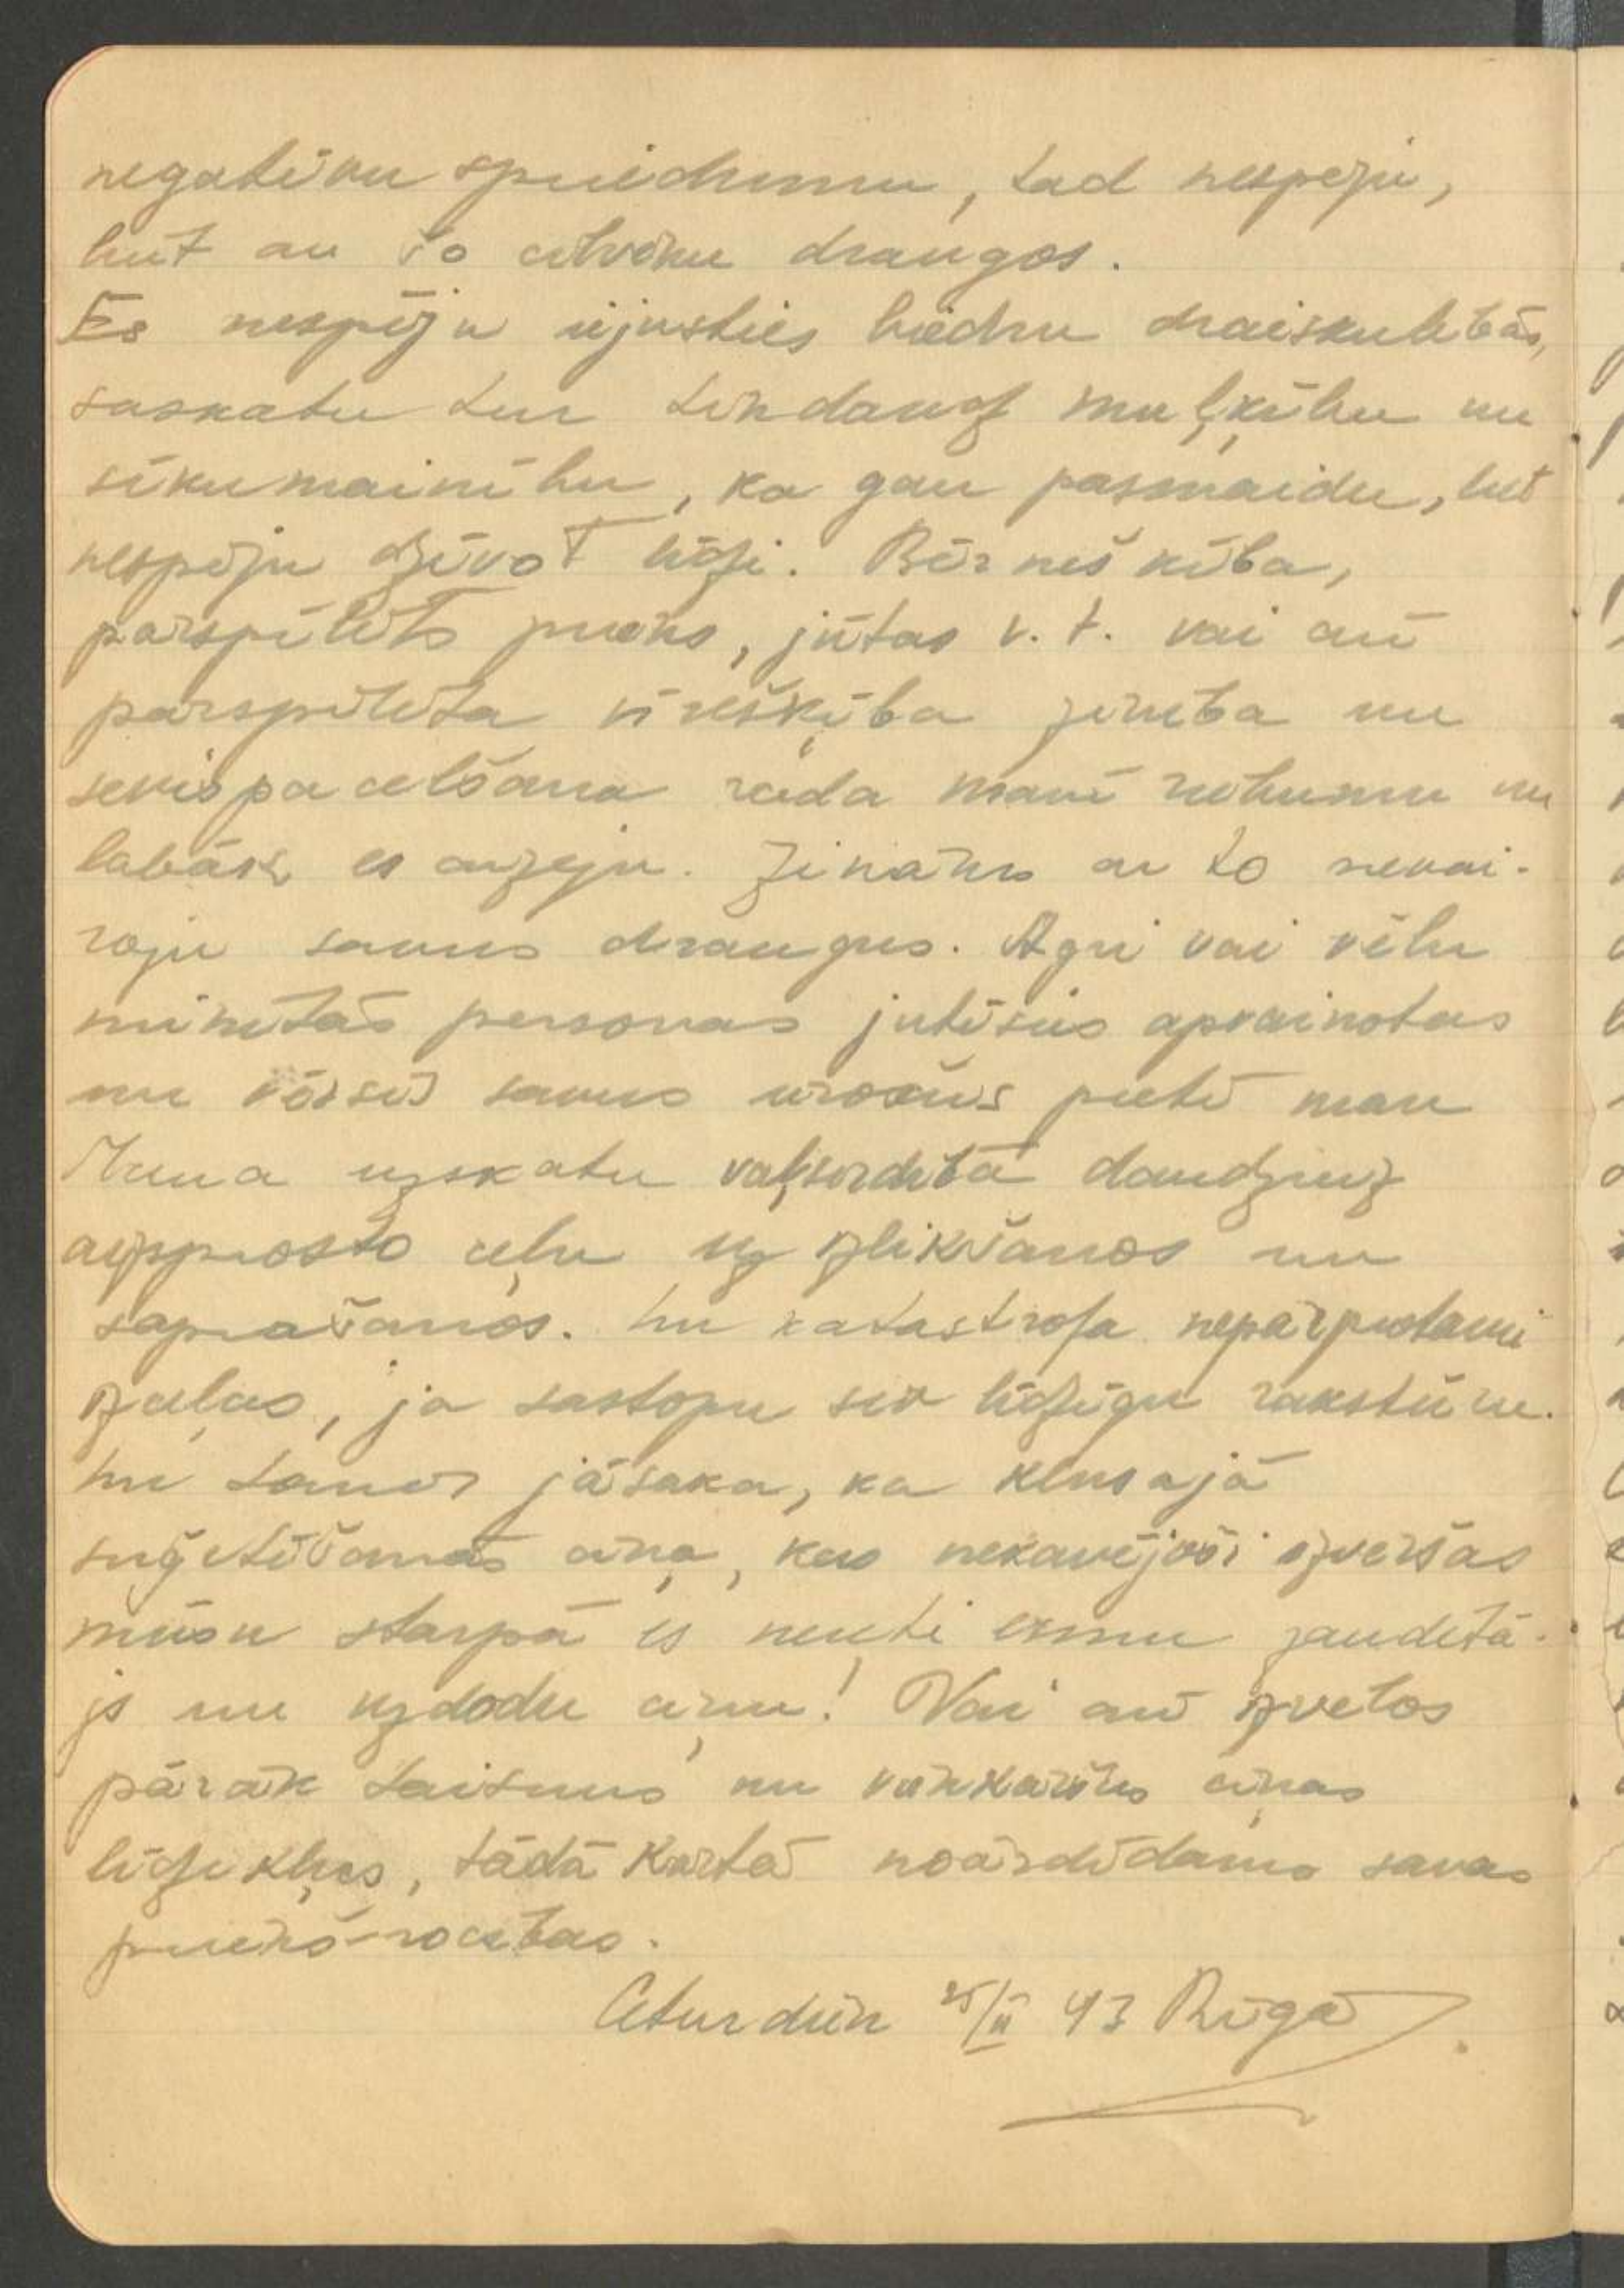 negatīvu spriedumu, tad nespēju,
būt ar šo cilvēku draugos.
Es nespēju iejusties biedru draiskulībās,
saskatu tur tik daudz muļķību un
sīkumainību, ka gan pasmaidu, bet
nespēju dzīvot līdzi. Bērnišķība,
pārspīlēts prieks, jūtas u. t. vai arī
pārspīlēta vīrišķība
sevis pacelšana rada manī riebumu un
labāk es aizeju. Zināms ar to nevai-
roju savus draugus. Agri vai vēlu
minētās personas jutīsies apvainotas
un vērsīs savus ieročus pretī man
Mana uzskatu vaļsirdība daudzreiz
aizsprosto ceļu uz izlikšanos un
saprašanos. Un katastrofa nepārprotami
izceļas, ja sastopu sev līdzīgu raksturu.
Un tomēr jāsaka, ka klusajā
cīņa, kas nekavējoši izvēršas
mūsu starpā es neesmu zaudētā-
js un uzdodu cīņu! Vai arī izvēlos
pārāk taisnus un vienkāršus cīņas
līdzekļus, tādā kārtā noārdīdams savas
priekšrocības.
Ceturdien 25/II 43 Rīgā